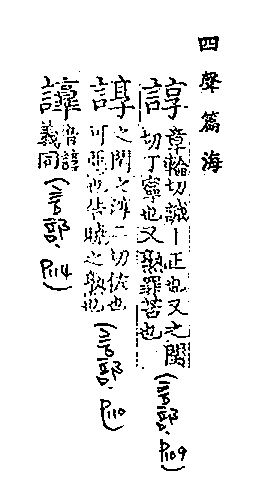 四聲篇海
諄章輪切誠｜正也又之閏切丁寧也又熟罪苦也（言部、P109）
諄之閏之溥二切佐也可惡也告曉之熟也（言部、P110）
音諄義同（言部、P114）